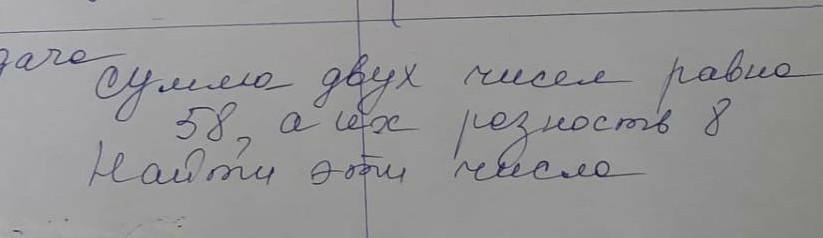 дача
Сумма двух чисел равна
58, а их разность 8
Найти эти числа